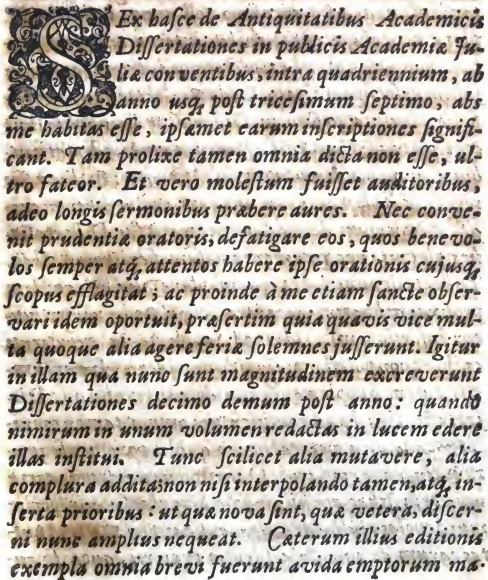 SEx hasce de Antiquitatibus Academicis
Dissertationes in publicis Academiæ Ju-
liæ conventibus, intra quadriennium, ab
anno usq; post tricesimum septimo, abs
me habitas esse, ipsamet earum inscriptiones signifi-
cant. Tam prolixe tamen omnia dicta non esse, ul-
tro fateor. Et vero molestum fuisset auditoribus,
adeo longis sermonibus præbere aures. Nec conve-
nit prudentiæ oratoris, defatigare eos, quos benevo-
los semper atq; attentos habere ipse orationis cujusq;
scopus efflagitat; ac proinde à me etiam sancte obser-
vari idem oportuit, præsertim quia quavis vice mul-
ta quoque alia agere feriæ solemnes jusserunt. Igitur
in illam qua nunc sunt magnitudinem excreverunt
Dissertationes decimo demum post anno: quando
nimirum in unum volumen redactas in lucem edere
illas institui. Tunc scilicet alia mutavere, alia
complura addita; non nisi interpolando tamen, atq; in-
serta prioribus: ut quæ nova sint, quæ vetera, discer-
ni nunc amplius nequeat. Cæterum illius editionis
exempla omnia brevi fuerunt avida emptorum ma-